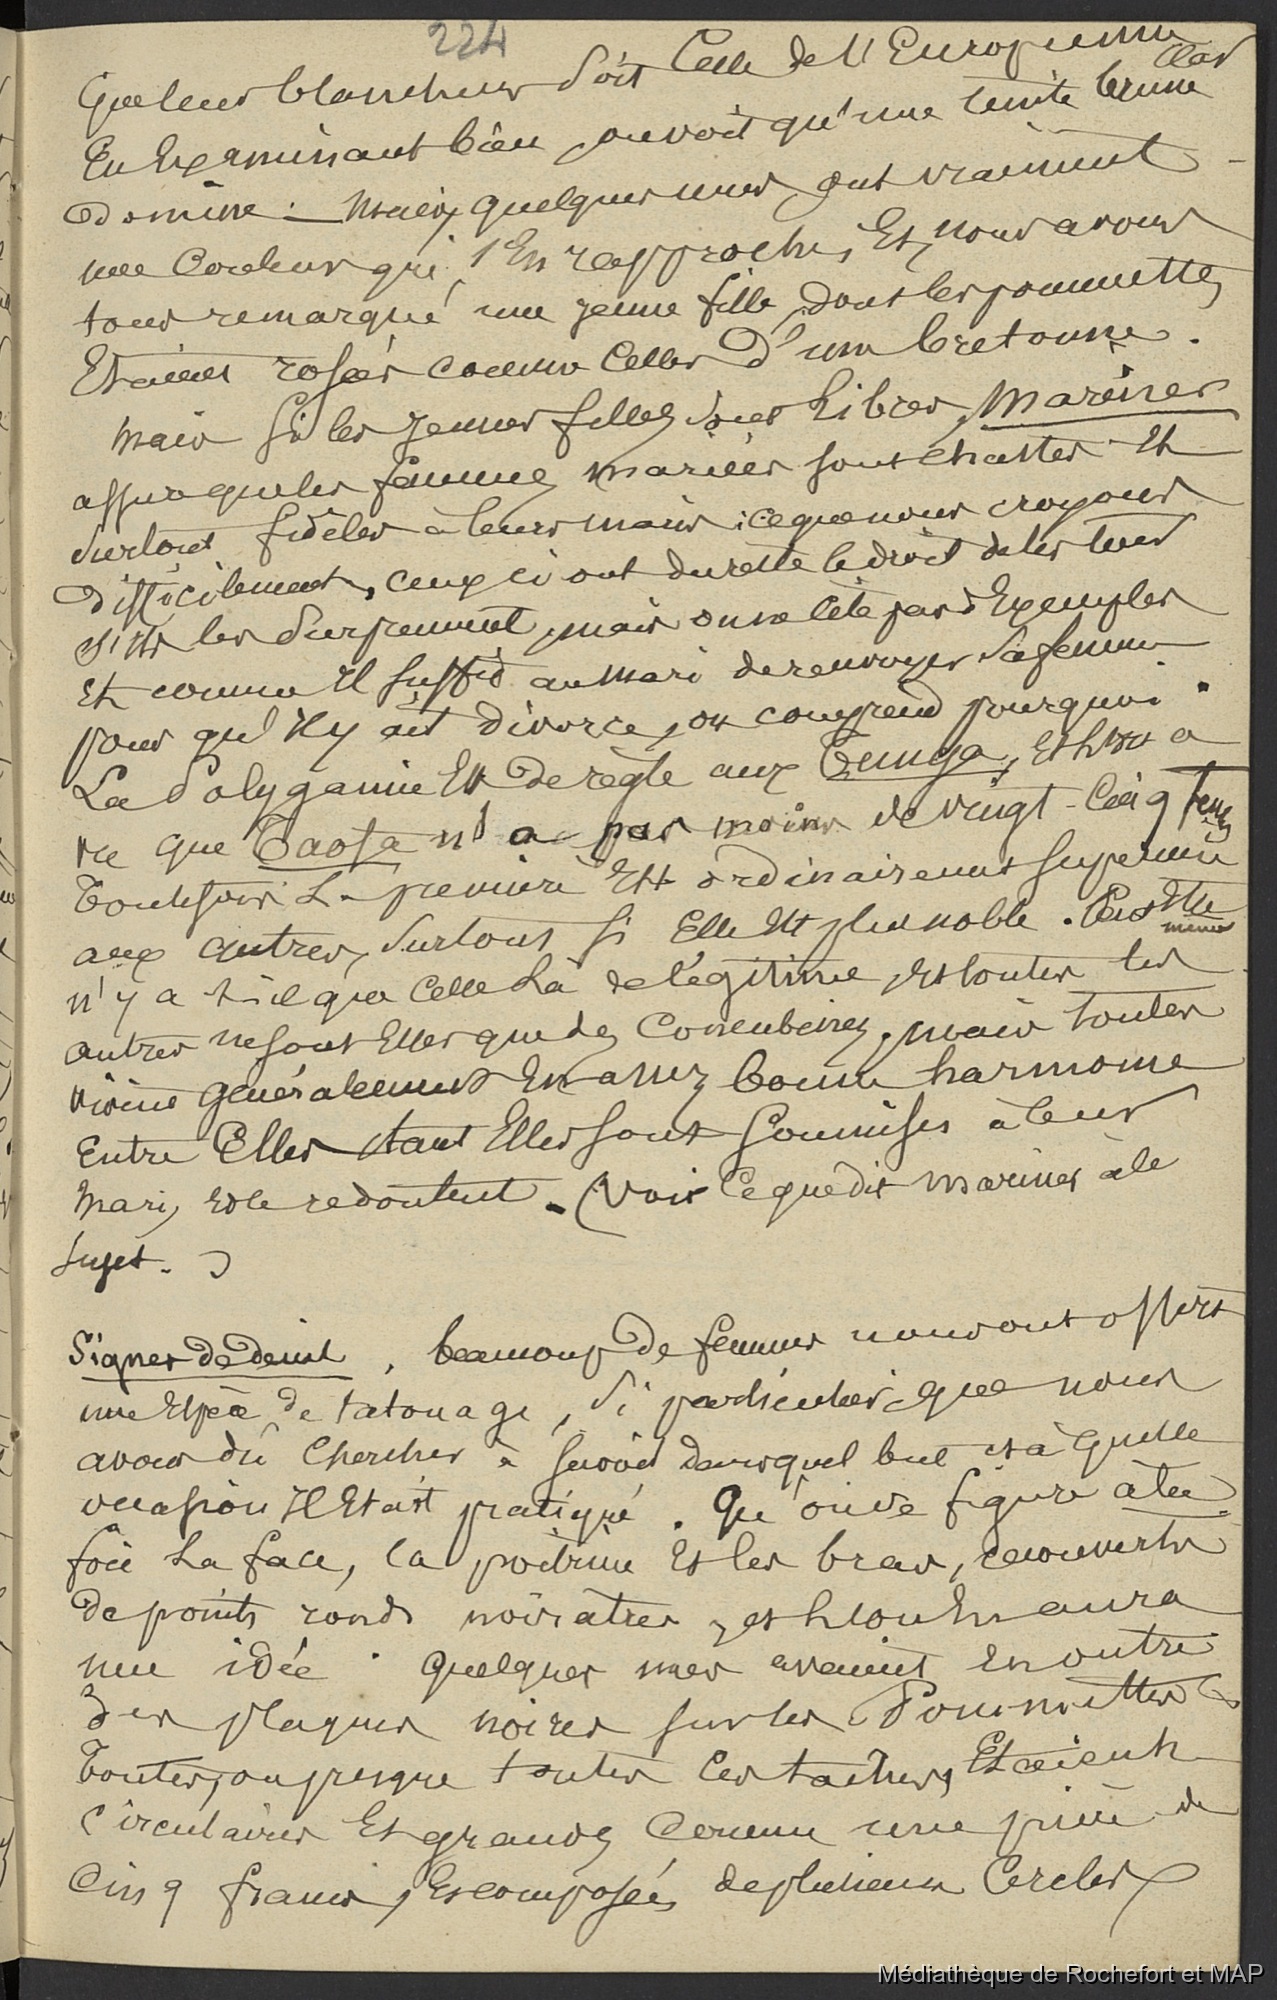 224
que leur blancheur soit celle de l'Européenne
clair
En Examinant bien, on voit qu'une teinte brune
domine. Mais quelques unes ont vraiment
une couleur qui s'En rapproche, Et nous avons
tous remarqué une jeune fille, dont les pommettes
Etaient rosées comme celles d'une bretonne.
Mais si les jeunes filles sont libres, Mariner
assure que les femmes mariées sont chastes Et
surtout fidèles à leurs maris ; ce que nous croyons
difficilement, ceux ci ont du reste le droit de les tuer
s'ils les surprennent, mais on ne cite pas d'Exemples
Et comme Il suffit au mari de renvoyer sa femme
pour qu'il y ait divorce, on comprend pourquoi.
La Polygamie Est de règle aux Tunga, Et
que Taofa n'a pas moins de vingt-cinq femmes
Toutefois La première Est ordinairement supérieure
aux autres, surtout si Elle Est plus noble. Peut Etre
même
n'y a t-il que celle là de légitime, Et toutes les
autres ne sont Elles que des Concubines, mais toutes
vivent généralement En assez bonne harmonie
Entre Elles tant Elles sont soumises à leur
Mari, Et le redoutent. (Voir ce que dit Mariner à ce
sujet.)
Signes de deuil, beaucoup de femmes nous ont offert
une Espèce de tatouage, si particulier que nous
avons dû chercher à savoir dans quel but et à quelle
occasion Il Etait pratiqué. Qu'on se figure à la
fois La face, la poitrine Et les bras, couverts
de points ronds noirâtres, et l'on En aura
une idée. Quelques unes avaient En outre
des plaques noires sur les Pommettes
Toutes, ou presque toutes ces taches, Etaient
circulaires Et grandes comme une pièce de
cinq francs, Et composées de plusieurs cercles
Médiathèque de Rochefort et MAP